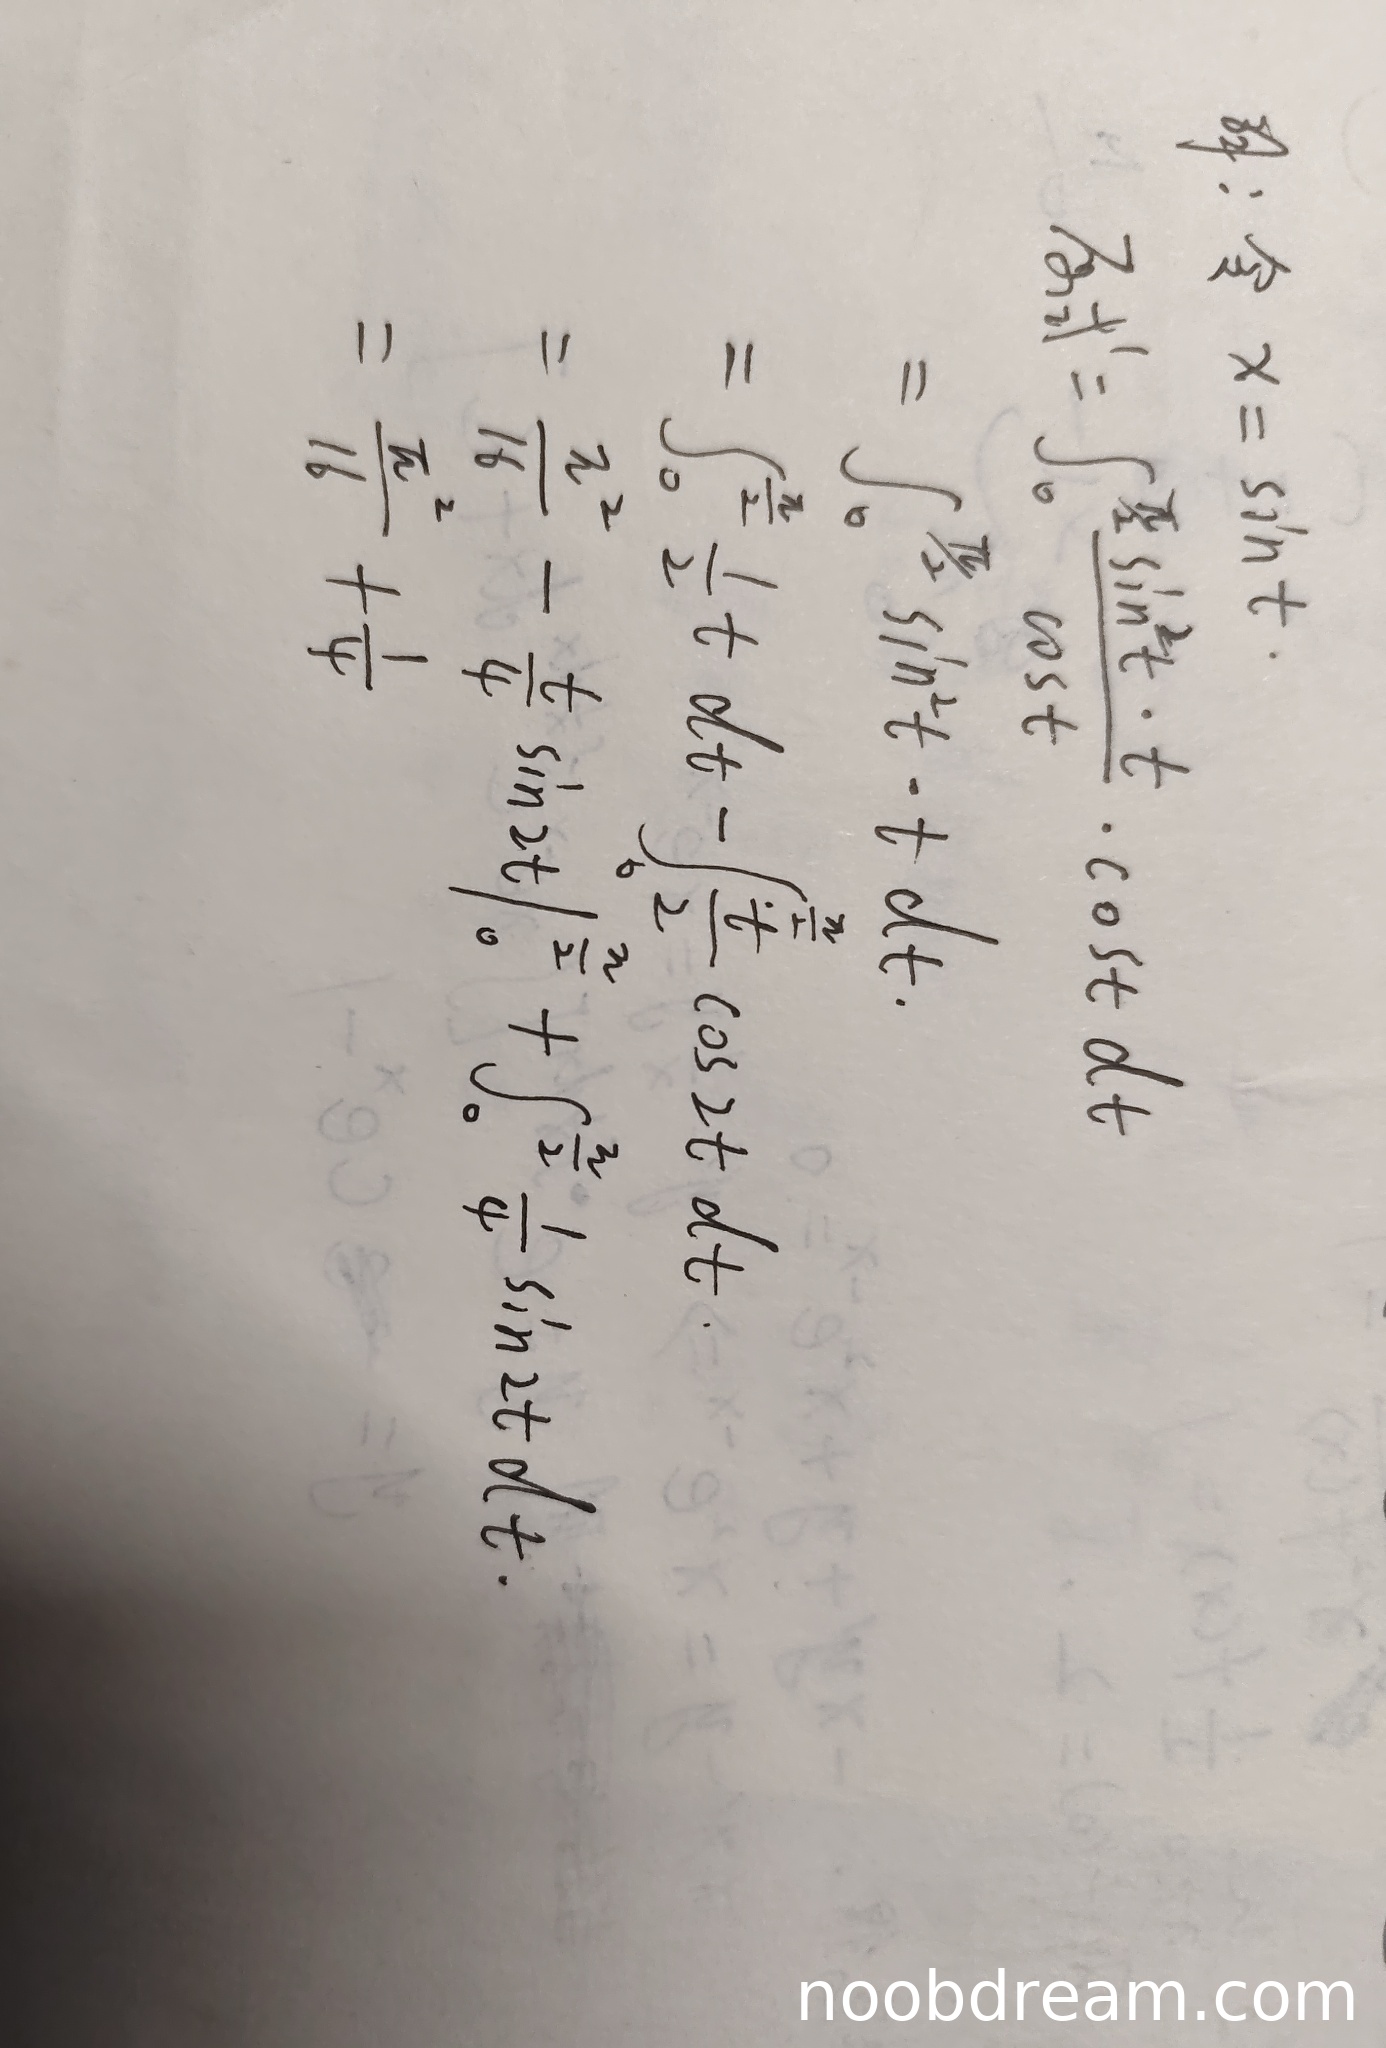 解: 令 x = sin t.
原式 = ∫₀^{π/2} (sin²t · t)/(cos t) · cos t dt
= ∫₀^{π/2} sin²t · t dt.
= ∫₀^{π/2} 1/2 t dt - ∫₀^{π/2} t/2 cos 2t dt.
= π²/16 - t/4 sin 2t |₀^{π/2} + ∫₀^{π/2} 1/4 sin 2t dt.
= π²/16 + 1/4
noobdream.com